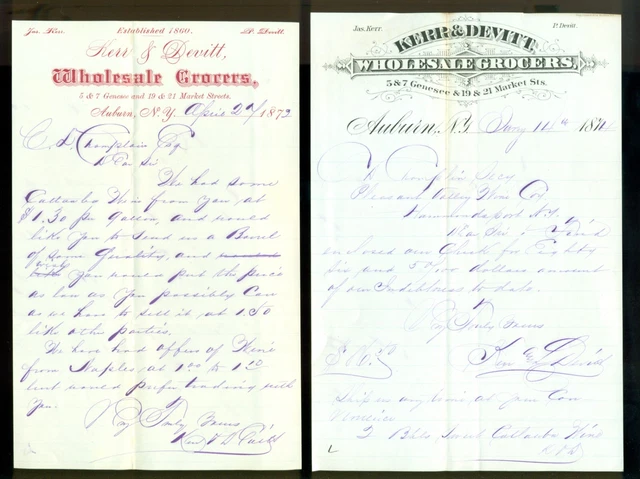 Jas. Kerr. Established 1860. P. Devitt.
Kerr & Devitt,
Wholesale Grocers,
5 & 7 Genesee and 19 & 21 Market Streets.
Auburn, N.Y. April 1872
C D Champlin Esq
Dear Sir
We had some
Catawba Wine from you at
$1.30 per Gallon, and would
like you to send us a Barrel
of same Quality, and
you would put the price
as low as you possibly can
as we have to sell it at 1 50
like other parties.
We have had offers of Wine
from Naples at 1 00 to 1 20
but would prefer trading with
you.
Very Truly Yours
Kerr & Devitt
Jas. Kerr. P. Devitt.
KERR & DEVITT.
WHOLESALE GROCERS,
5 & 7 Genesee & 19 & 21 Market Sts.
Auburn, N.Y. Jany 14th 187
Champlin, Secy
Pleasant Valley Wine Co
Hammondsport N.Y.
Dear Sir Find
enclosed our Check for Eighty
Six and 50/100 dollars amount
of our Indebtness to date.
Very Truly Yours
$86.50 Kerr & Devitt
Ship us any time at your Con
venience
2 Bbls Sweet Catawba Wine
K & D